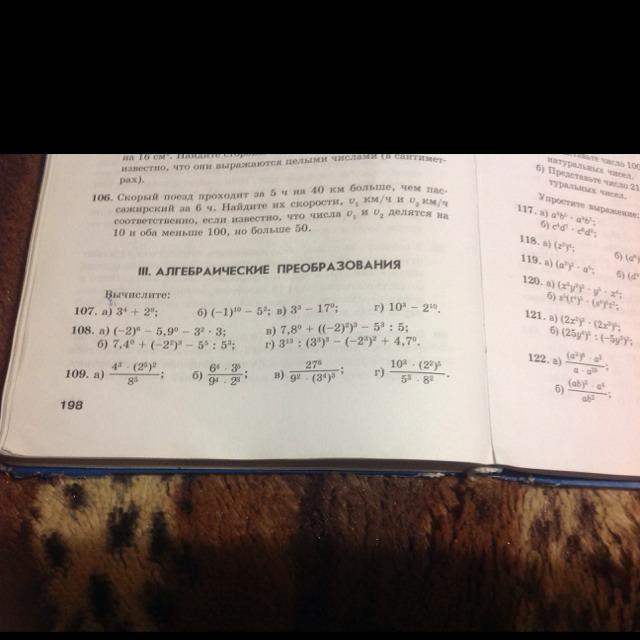 на 16 см². Найдите
известно, что они выражаются целыми числами (в сантимет-
рах).
106. Скорый поезд проходит за 5 ч на 40 км больше, чем пас-
сажирский за 6 ч. Найдите их скорости, v₁ км/ч и v₂ км/ч
соответственно, если известно, что числа v₁ и v₂ делятся на
10 и оба меньше 100, но больше 50.
III. АЛГЕБРАИЧЕСКИЕ ПРЕОБРАЗОВАНИЯ
Вычислите:
107. а) 3⁴ + 2⁶; б) (−1)¹⁰ − 5²; в) 3³ − 17⁰; г) 10³ − 2¹⁰.
108. а) (−2)⁶ − 5,9⁰ − 3² · 3; в) 7,8⁰ + ((−2)²)³ − 5³ : 5;
б) 7,4⁰ + (−2²)³ − 5⁵ : 5³; г) 3¹³ : (3³)³ − (−2³)² + 4,7⁰.
109. а) (4³ · (2⁵)²)/8⁵; б) (6⁴ · 3⁵)/(9⁴ · 2³); в) 27⁶/(9² · (3⁴)³); г) (10³ · (2²)⁵)/(5³ · 8²).
198
число 100
натуральных чисел.
б) Представьте число 21
туральных чисел.
Упростите выражение
117. а)
б)
118. а) б)
119. а) б)
120. а)
б)
121. а)
б)
122. а)
б)